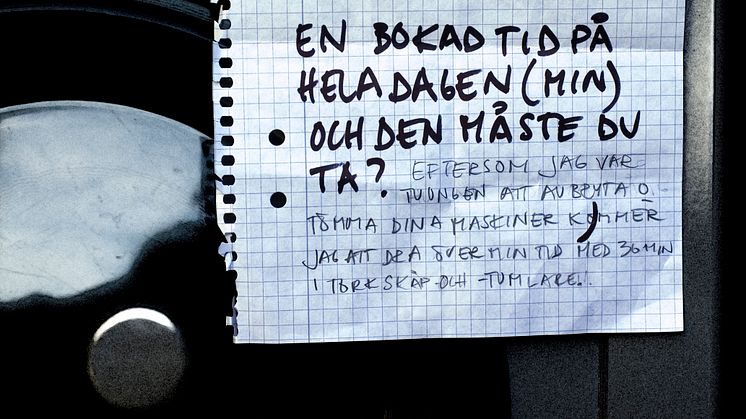 EN BOKAD TID PÅ
HELA DAGEN (MIN)
OCH DEN MÅSTE DU
TA? EFTERSOM JAG VAR
TVUNGEN ATT AVBRYTA O
TÖMMA DINA MASKINER KOMMER
JAG ATT DRA ÖVER MIN TID MED 36 MIN
I TORKSKÅP- OCH -TUMLARE!